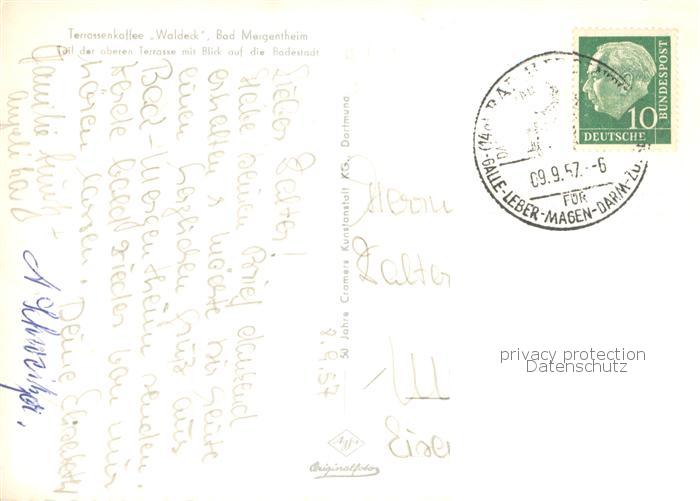 Terrassenkaffee „Waldeck", Bad Mergentheim
Teil der oberen Terrasse mit Blick auf die Badestadt
8.9.57
Lieber Walter!
Habe deinen Brief dankend
erhalten & möchte dir heute
einen herzlichen Gruß aus
Bad-Mergentheim senden.
Werde bald wieder von mir
hören lassen. Deine Elisabeth
Familie
A. Schweitzer,
50 Jahre Cramers Kunstanstalt KG., Dortmund
Agfa
Originalfoto
Herrn
Walter
(14a) BAD
09.9.57.-6
FÜR
GALLE-LEBER-MAGEN-DARM-ZU
10
DEUTSCHE
BUNDESPOST
privacy protection
Datenschutz